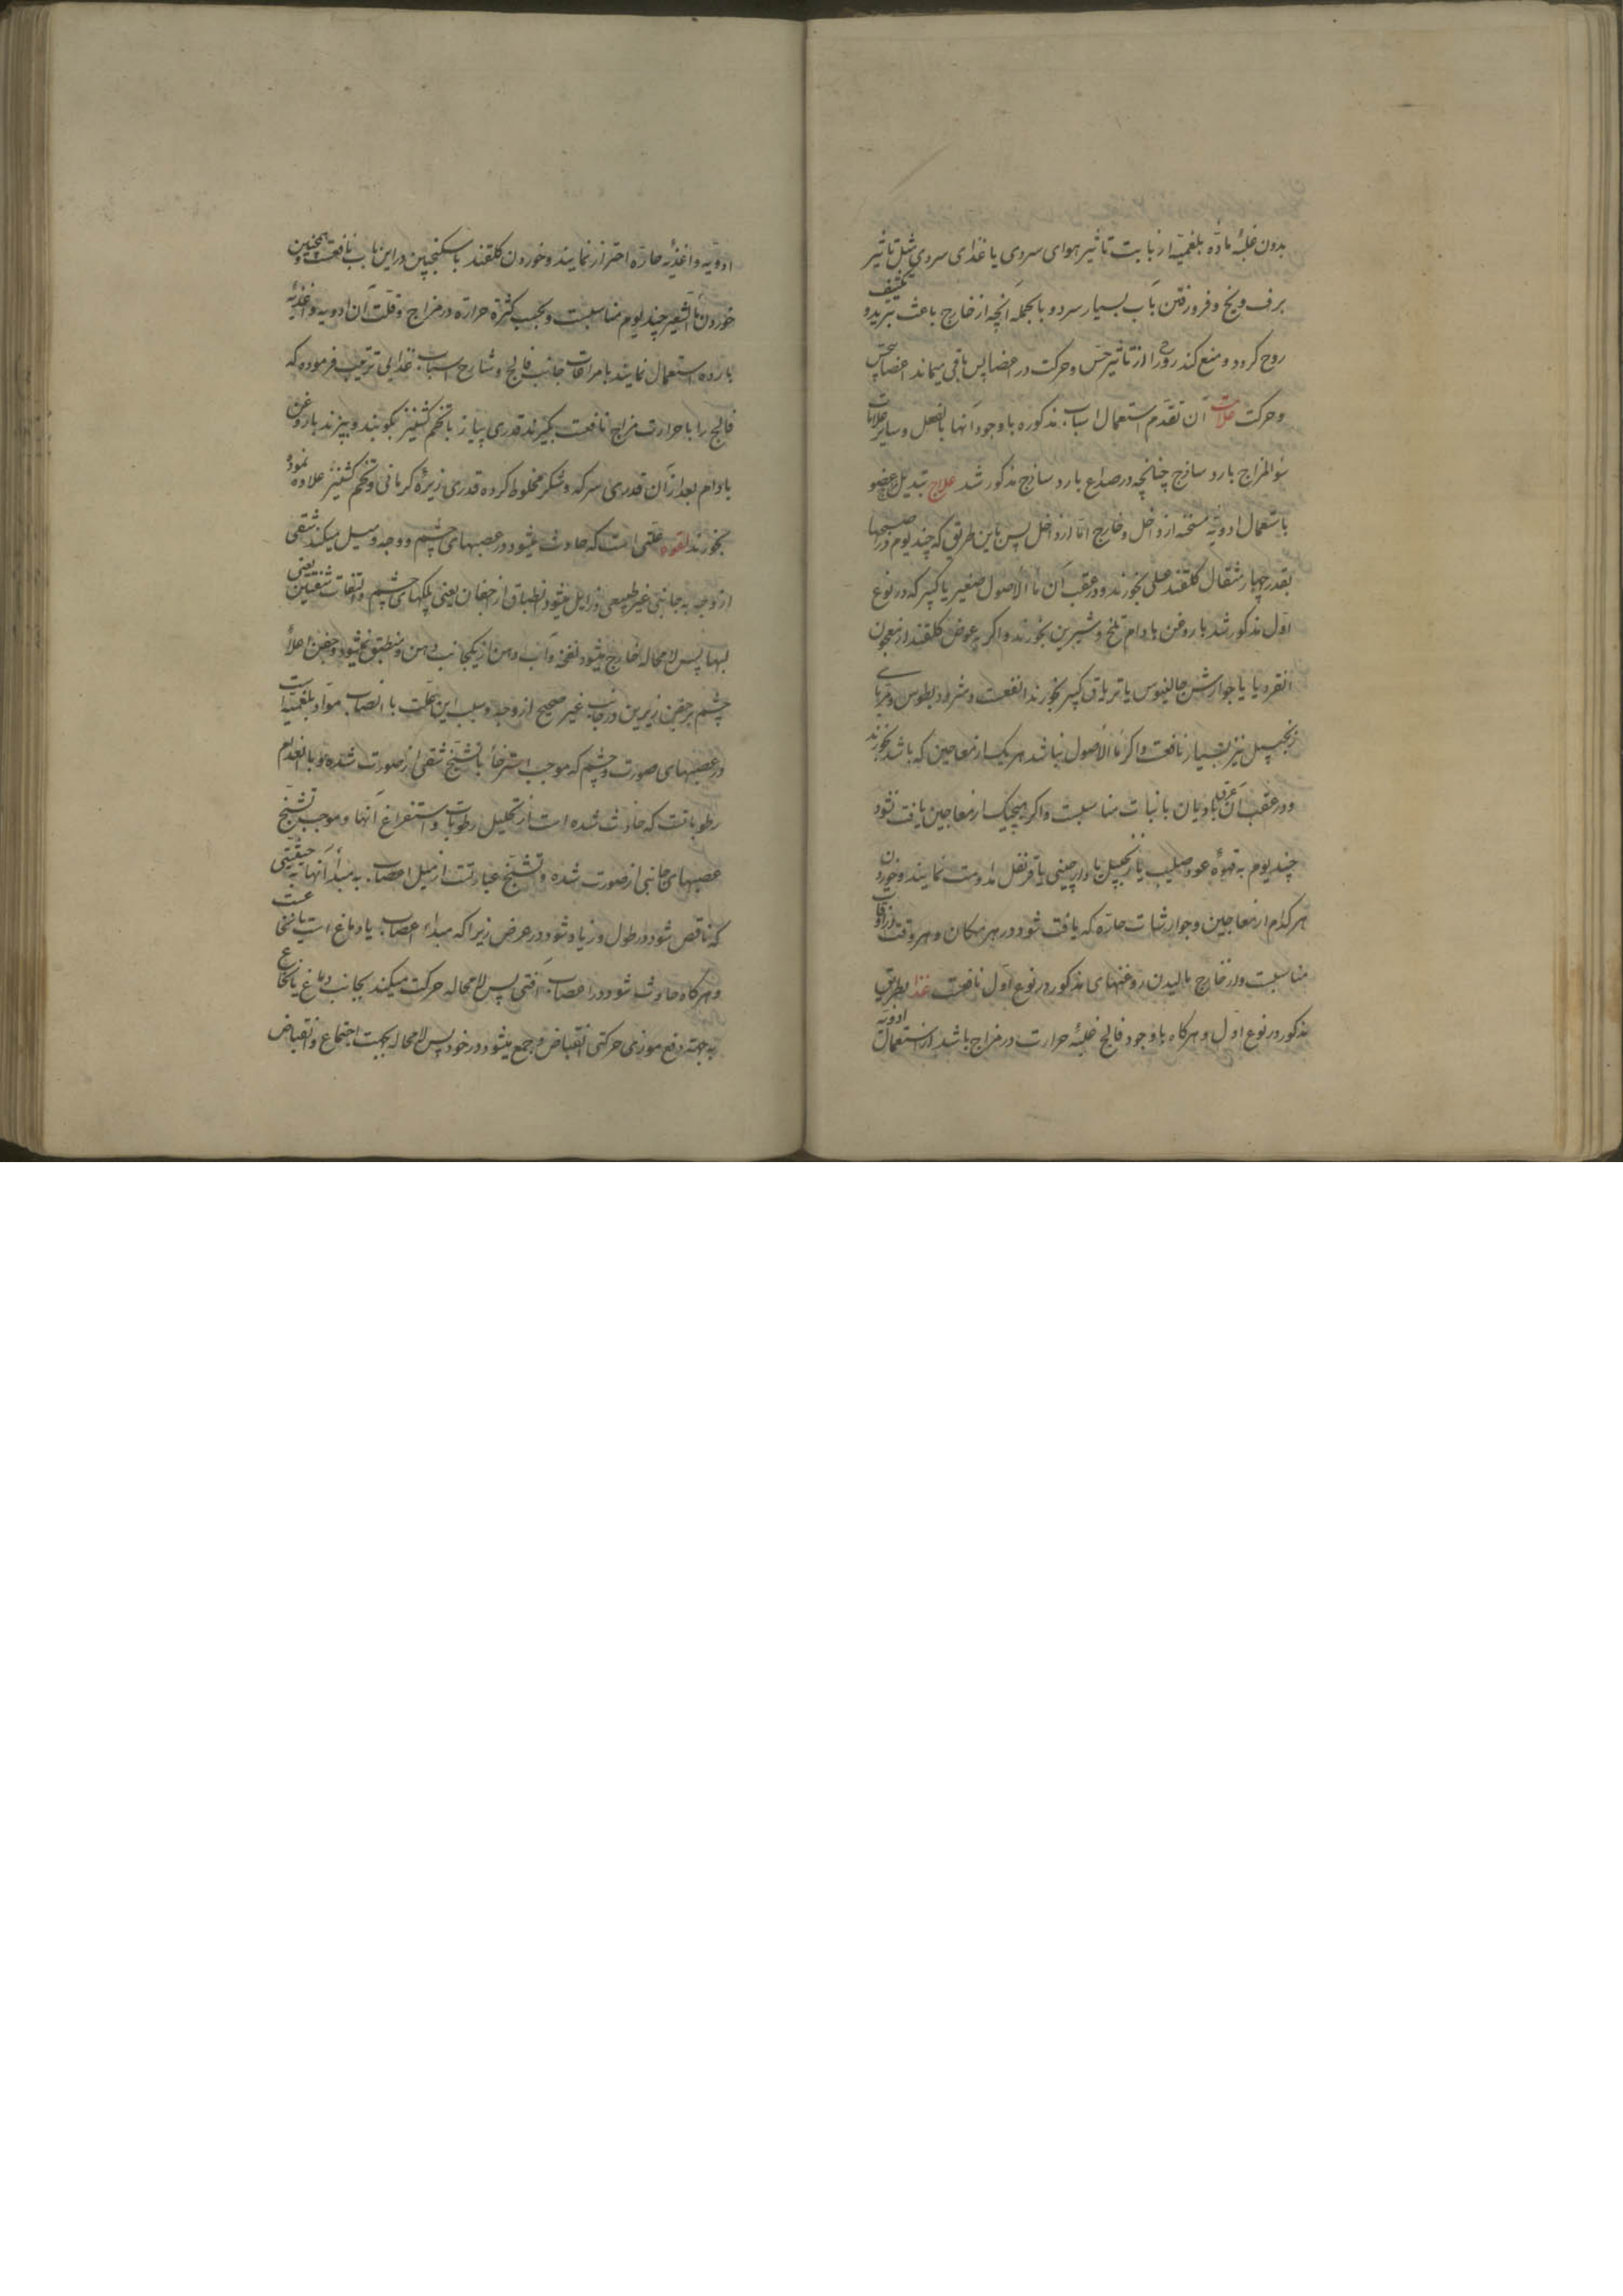 بدون غلبهٔ مادّه بلغمیّه از بابت تأثیر هوای سردی یا غذای سردی مثل تاثیر
برف و یخ و فرو رفتن بآب بسیار سرد و بالجمله آنچه از خارج باعث تبرید و تکثیف
روح گردد و منع کند روح را از تأثیر حسّ و حرکت در اعضا پس باقی میماند اعضا بیحسّ
و حرکت علامت آن تقدّم استعمال اسباب مذکوره با وجود آنها بالفعل و سایر علامات
سؤالمزاج بارد ساذج چنانچه در صداع بارد ساذج مذکور شد علاج تبدیل مزاج عضو
باستعمال ادویّه مسخنه از داخل و خارج امّا از داخل پس باین طریق که چند یوم در صبحها
بقدر چهار مثقال کلقند عسلی بخورند و در عقب آن ماءالاصول صغیر یا کبیر که در نوع
اوّل مذکور شد با روغن بادام تلخ و شیرین بخورند و اکر به عوض کلقند از معجون
انقردیا یا جوارش جالینوس یا تریاق کبیر بخورند انفعست و مثرودیطوس و مربای
زنجبیل نیز بسیار نافعست و اکر ماءالاصول نباشد هر یک از معاجین که باشد بخورند
و در عقب آن عرق بادیان با نبات مناسبست و اکر هیچیک از معاجین یافت نشود
چند یوم به قهوهٔ عود صلیب یا زنجبیل یا دارچینی یا قرنفل مداومت نمایند و خوردن
هر کدام از معاجین و جوارشات حارّه که یافت شود در هر مکان و هر وقت از اوقات
مناسبست و از خارج مالیدن روغنهای مذکور در نوع اوّل نافعست غذا بطریق
مذکور در نوع اوّل و هرکاه با وجود فالج غلبهٔ حرارت در مزاج باشد از استعمال ادویّه
ادویّه و اغذیهٔ حارّه احتراز نمایند و خوردن کلقند با سکنجبین در این باب نافعست و همچنین
خوردن ماءالشعیر چند یوم مناسبست و بحسب کثرة حرارة در مزاج و قلّت آن ادویه و اغذیهٔ
بارده استعمال نمایند با مراعات جانب فالج و شارح اسباب غذایی ترتیب فرموده که
فالج را با حرارت مزاج نافعست بکیرند قدری پیاز با تخم کشنیز بکوبند و بپزند با روغن
بادام بعد از آن قدری سرکه و شکر مخلوط کرده قدری زیرهٔ کرمانی و تخم کشنیز علاوه نموده
بخورند لقوه علّتی است که حادث میشود در عصبهای چشم و وجه و میل میکند شقّی
از وجه به جانبی غیر طبیعی و زایل میشود انطباق اجفان یعنی پلکهای چشم و التفات شفتین یعنی
لبها پس لا محاله خارج میشود نفخه و آب دهن از یکجانب دهن و منطبق نمیشود جفن اعلاٴ
چشم بر جفن زیرین در جانب غیر صحیح از وجه و سبب این علّت با انصاب موّاد بلغمیّه است
در عصبهای صورت و چشم که موجب استرخأ یا تشنّج شقّی از صورت شده و یا انعدام
رطوباتست که حادث شده است از تحلیل رطوبات و استفراغ آنها و موجب تشنّج
عصبهای جانبی از صورت شده و تشنّج عبارتست از میل اعصاب به مبدأ آنها به حیثیّتی
که ناقص شود در طول و زیاد شود در عرض زیرا که مبداء اعصاب یا دماغ است یا نخاع
و هرکاه حادث شود در اعصاب آفتی پس لا محاله حرکت میکند بجانب دماغ یا نخاع
به جهة دفع موذی حرکتی انقباض و جمع میشود در خود پس لا محاله بجهت اجتماع و انقباض